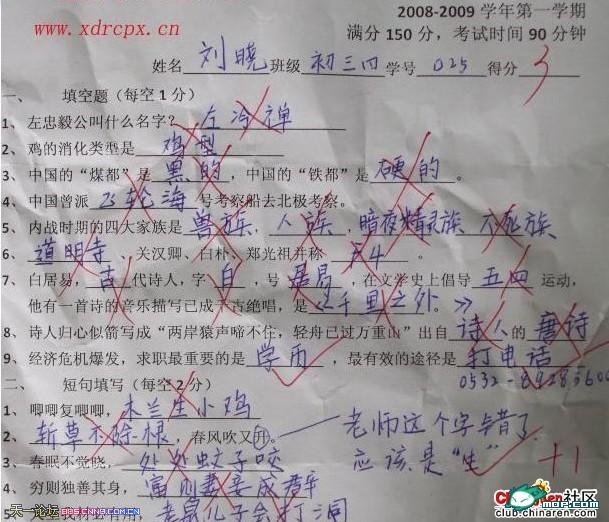 www.xdrcpx.cn
2008-2009 学年第一学期
满分 150 分，考试时间 90 分钟
姓名 刘晓 班级 初三四 学号 025 得分 3
一、 填空题（每空 1 分）
1、左忠毅公叫什么名字？ 左冷禅
2、鸡的消化类型是 鸡型
3、中国的“煤都”是 黑的 ，中国的“铁都”是 硬的 。
4、中国曾派 飞轮海 号考察船去北极考察。
5、内战时期的四大家族是 兽族、人族、暗夜精灵族、不死族
6、 道明寺 、关汉卿、白朴、郑光祖并称 F4 。
7、白居易，古 代诗人，字 白 ，号 居易 ，在文学史上倡导 五四 运动，
他有一首诗的音乐描写已成千古绝唱，是 《千里之外。》
8、诗人归心似箭写成“两岸猿声啼不住，轻舟已过万重山”出自 诗人 的 唐诗
9、经济危机爆发，求职最重要的是 学历 ，最有效的途径是 打电话
0532-89285600
二、 短句填写（每空 2 分）
1、唧唧复唧唧，木兰生小鸡
2、 斩草不除根 ，春风吹又升。——老师这个字写错了
应该是“生” +1
3、春眠不觉晓， 处处蚊子咬
4、穷则独善其身， 富则妻妾成群
老鼠儿子会打洞
天一论坛 BBS.CNNB.COM.CN
ChinaRen社区
club.chinaren.com